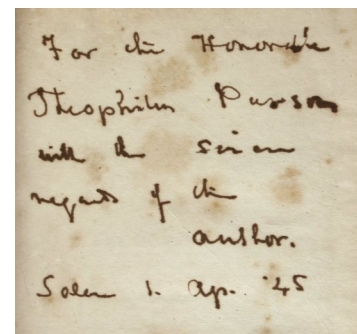 For the Honorable
Theophilus Parsons
with the sincere
regards of the
author.
Salem 1. Ap. '45